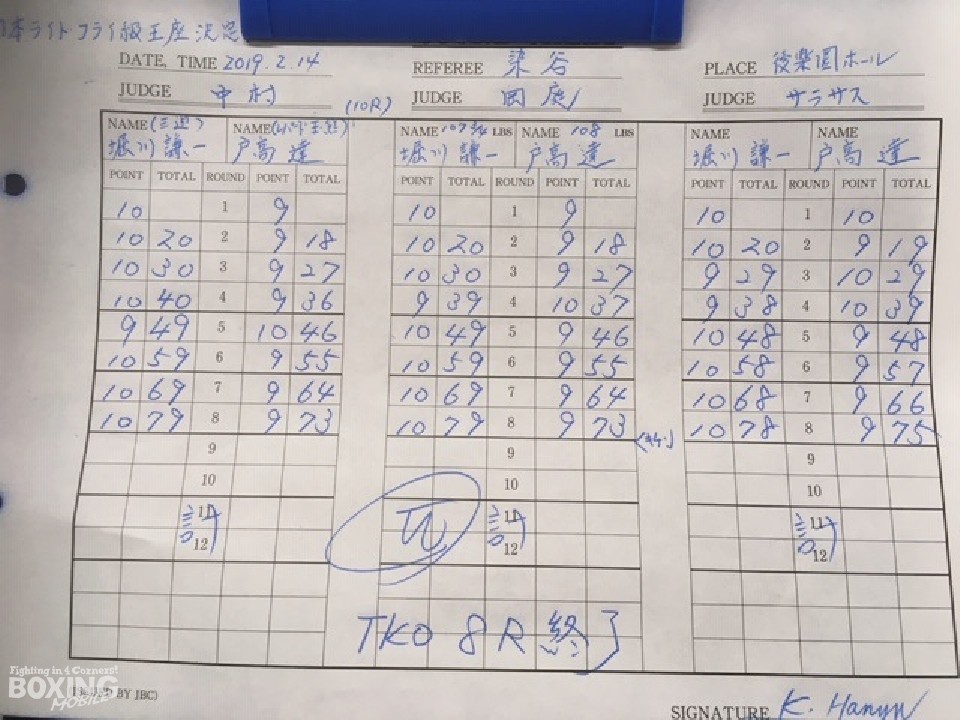 本ライト・フライ級王座決定
DATE, TIME 2019.2.14 REFEREE 染谷 PLACE 後楽園ホール
JUDGE 中村 (10R) JUDGE JUDGE サラサス
NAME NAME NAME 107 3/4 LBS NAME 108 LBS NAME NAME
堀川謙一 戸高達 堀川謙一 戸高達 堀川謙一 戸高達
POINT TOTAL ROUND POINT TOTAL POINT TOTAL ROUND POINT TOTAL POINT TOTAL ROUND POINT TOTAL
10 1 9 10 1 9 10 1 10
10 20 2 9 18 10 20 2 9 18 10 20 2 9 19
10 30 3 9 27 10 30 3 9 27 9 29 3 10 29
10 40 4 9 36 9 39 4 10 37 9 38 4 10 39
9 49 5 10 46 10 49 5 9 46 10 48 5 9 48
10 59 6 9 55 10 59 6 9 55 10 58 6 9 57
10 69 7 9 64 10 69 7 9 64 10 68 7 9 66
10 79 8 9 73 10 79 8 9 73 10 78 8 9 75
9 9 9
10 10 10
計 11 W 計 11 計 11
12 12 12
TKO 8R終了
Fighting in 4 Corners!
BOXING
MOBILE
BY JBC)
SIGNATURE K. Hanyu